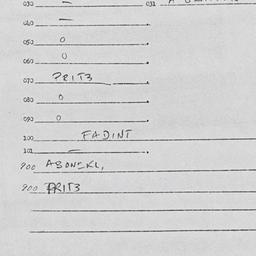 030 — 031
040 —
050 0
060 0
070 PRIT3
080 0
090 0
100 FADINT
101 —
900 ASONEKL,
900 PRIT3